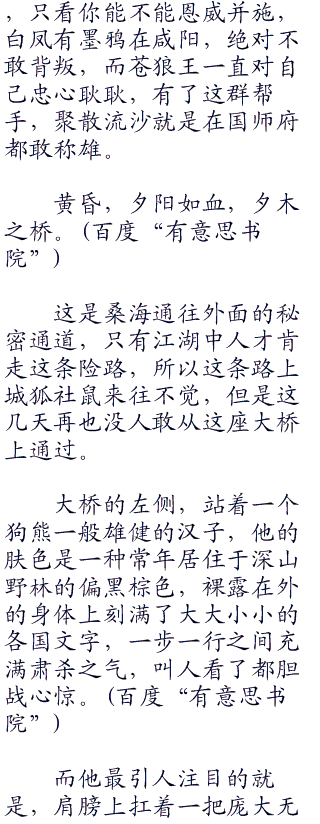 ，只看你能不能恩威并施，
白凤有墨鸦在咸阳，绝对不
敢背叛，而苍狼王一直对自
己忠心耿耿，有了这群帮
手，聚散流沙就是在国师府
都敢称雄。
黄昏，夕阳如血，夕木
之桥。(百度“有意思书
院”)
这是桑海通往外面的秘
密通道，只有江湖中人才肯
走这条险路，所以这条路上
城狐社鼠来往不觉，但是这
几天再也没人敢从这座大桥
上通过。
大桥的左侧，站着一个
狗熊一般雄健的汉子，他的
肤色是一种常年居住于深山
野林的偏黑棕色，裸露在外
的身体上刻满了大大小小的
各国文字，一步一行之间充
满肃杀之气，叫人看了都胆
战心惊。(百度“有意思书
院”)
而他最引人注目的就
是，肩膀上扛着一把庞大无